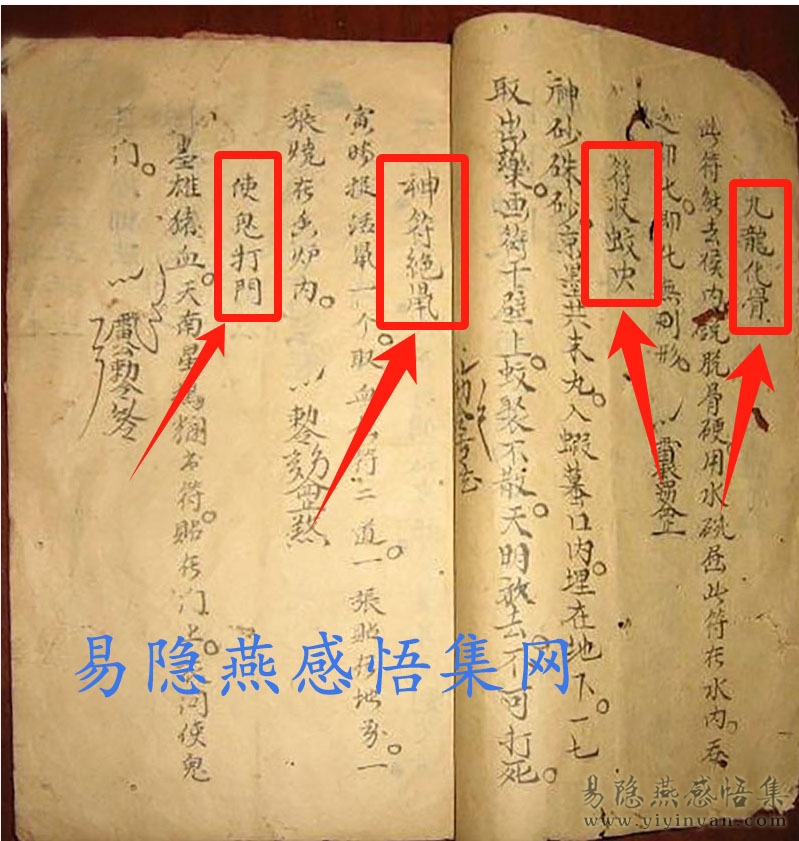 九龍化骨
此符能去猴内脱骨硬用水碗画此符在水内。吞
之即化即化無别形。
符收蚊虫
神砂硃砂京墨共末丸。入蝦蟇口内埋在地下。一七
取出藥画符于壁上。蚊裝不散天明敢去不可打死。
神符絶鼠
寅時捉活鼠一个。取血 符二道一張貼在地 。一
張燒在 炉内。
使鬼打門
墨雄猪血。天南星 符。貼在门上。 使鬼
门。
易隐燕感悟集网
易隐燕感悟集
www.yiyinyan.com